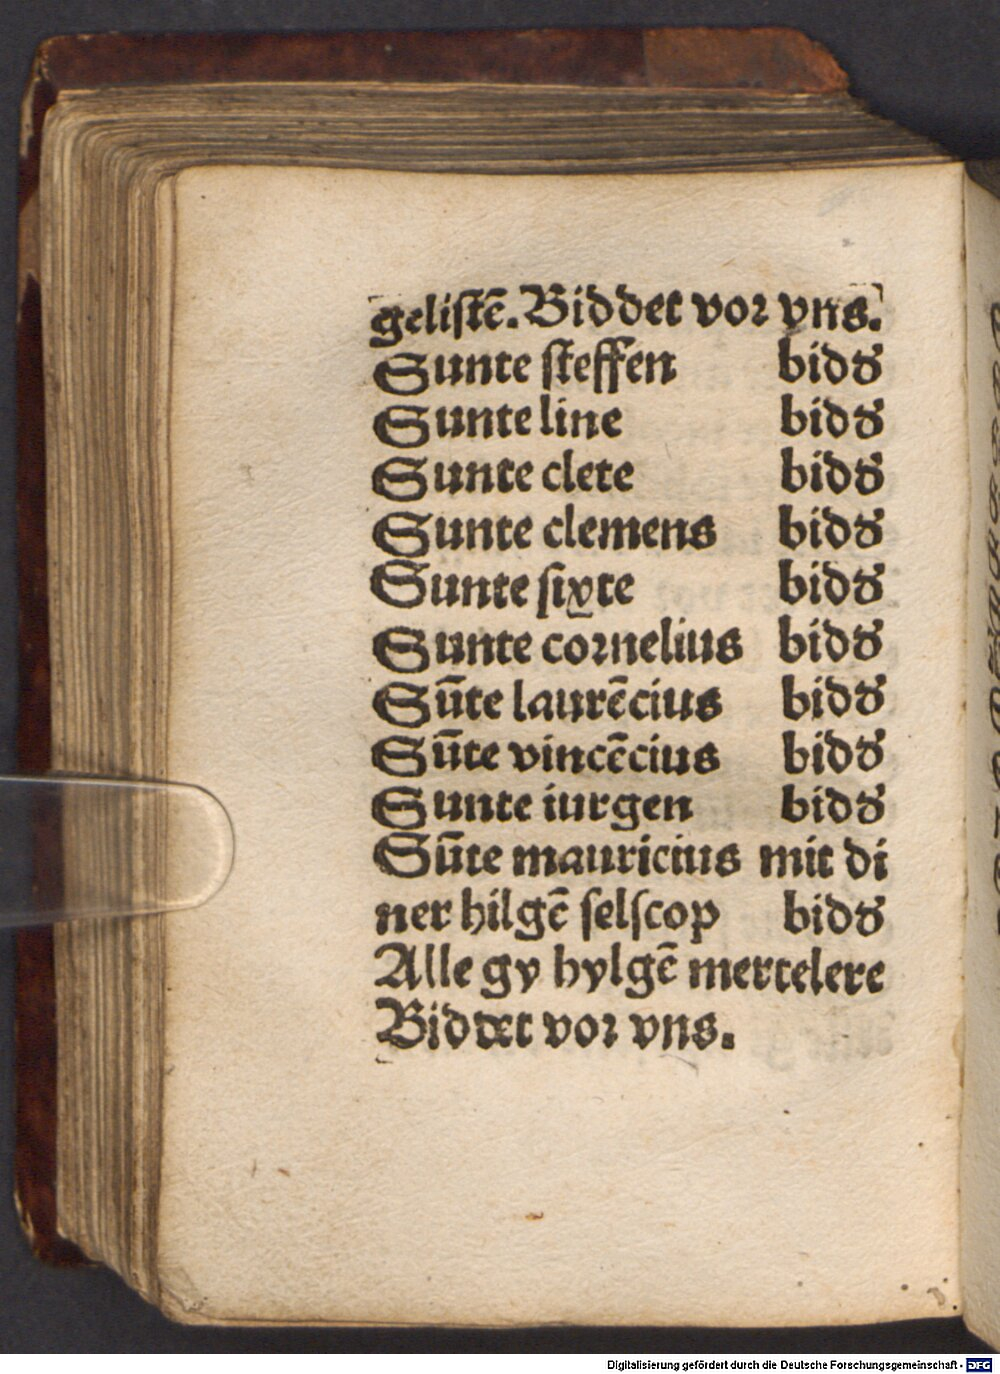 geliſtē. Biddet voꝛ vns.
Sunte ſteffen bidꝫ
Sunte line bidꝫ
Sunte clete bidꝫ
Sunte clemens bidꝫ
Sunte ſixte bidꝫ
Sunte coꝛnelius bidꝫ
Sūte laurēcius bidꝫ
Sūte vincēcius bidꝫ
Sunte iurgen bidꝫ
Sūte mauricius mit di
ner hilgē ſelſcop bidꝫ
Alle gy hylgē mertelere
Biddet voꝛ vns.
Digitalisierung gefördert durch die Deutsche Forschungsgemeinschaft - DFG